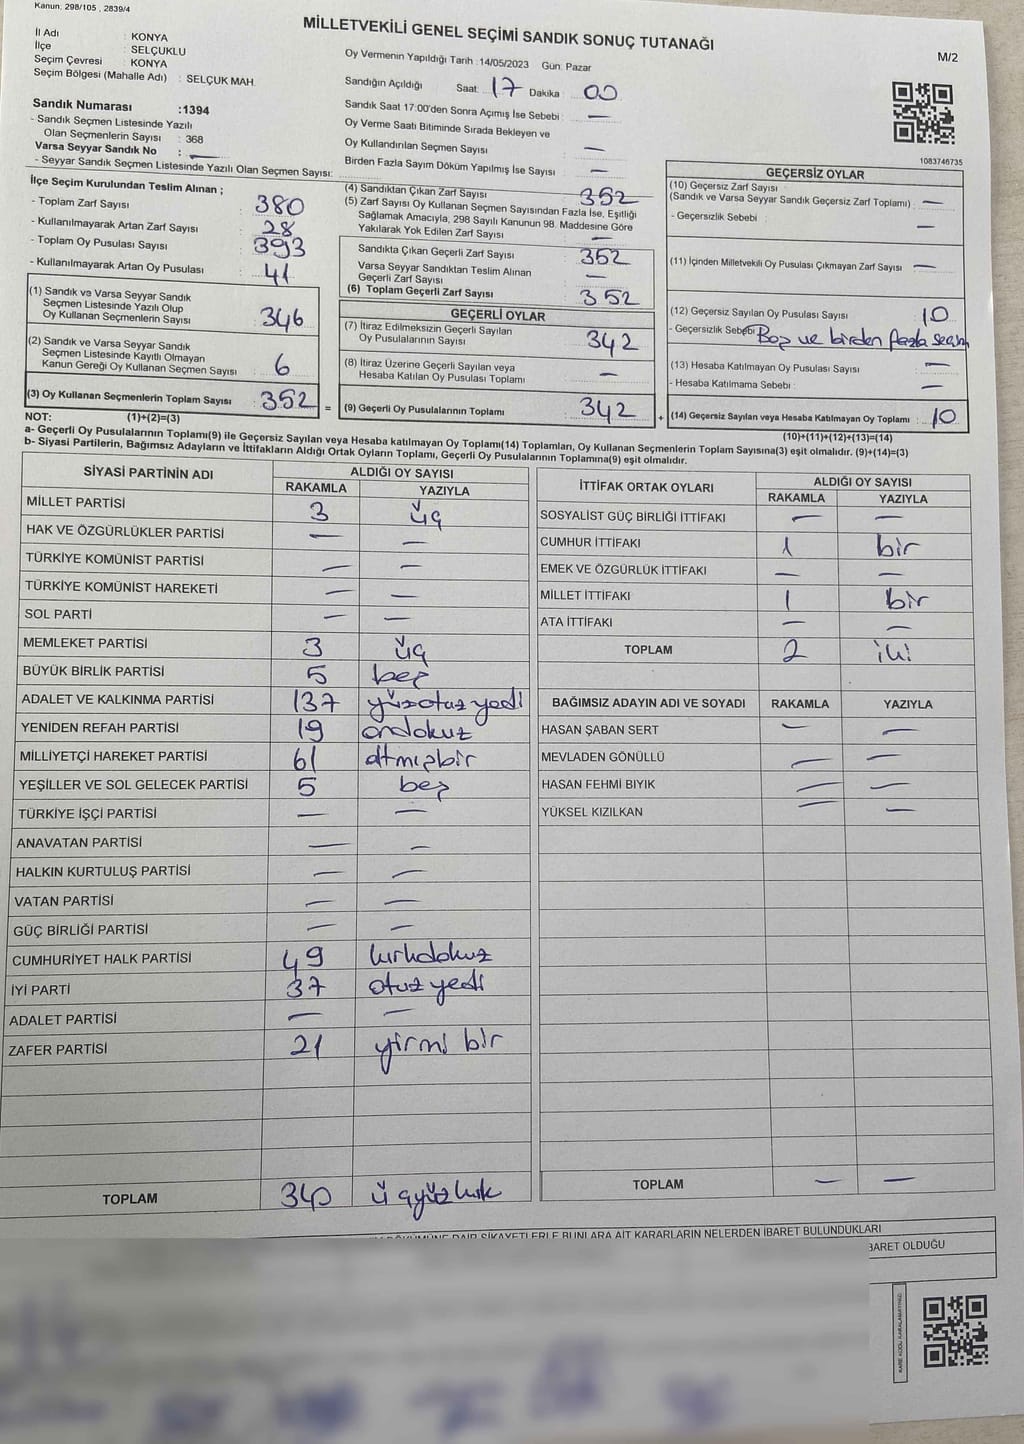 Kanun: 298/105 , 2839/4
MİLLETVEKİLİ GENEL SEÇİMİ SANDIK SONUÇ TUTANAĞI
M/2
İl Adı : KONYA
İlçe : SELÇUKLU
Seçim Çevresi : KONYA
Seçim Bölgesi (Mahalle Adı) : SELÇUK MAH.
Sandık Numarası :1394
- Sandık Seçmen Listesinde Yazılı
Olan Seçmenlerin Sayısı : 368
Varsa Seyyar Sandık No : —
- Seyyar Sandık Seçmen Listesinde Yazılı Olan Seçmen Sayısı:
Oy Vermenin Yapıldığı Tarih :14/05/2023 Gün: Pazar
Sandığın Açıldığı Saat: 17 Dakika : 00
Sandık Saat 17:00'den Sonra Açımış İse Sebebi : —
Oy Verme Saati Bitiminde Sırada Bekleyen ve
Oy Kullandırılan Seçmen Sayısı : —
Birden Fazla Sayım Döküm Yapılmış İse Sayısı : —
1083746735
İlçe Seçim Kurulundan Teslim Alınan ;
- Toplam Zarf Sayısı : 380
- Kullanılmayarak Artan Zarf Sayısı : 28
- Toplam Oy Pusulası Sayısı : 393
- Kullanılmayarak Artan Oy Pusulası : 41
(1) Sandık ve Varsa Seyyar Sandık
Seçmen Listesinde Yazılı Olup
Oy Kullanan Seçmenlerin Sayısı : 346
(2) Sandık ve Varsa Seyyar Sandık
Seçmen Listesinde Kayıtlı Olmayan
Kanun Gereği Oy Kullanan Seçmen Sayısı : 6
(3) Oy Kullanan Seçmenlerin Toplam Sayısı : 352 =
(4) Sandıktan Çıkan Zarf Sayısı : 352
(5) Zarf Sayısı Oy Kullanan Seçmen Sayısından Fazla İse, Eşitliği
Sağlamak Amacıyla, 298 Sayılı Kanunun 98. Maddesine Göre
Yakılarak Yok Edilen Zarf Sayısı : —
Sandıkta Çıkan Geçerli Zarf Sayısı : 352
Varsa Seyyar Sandıktan Teslim Alınan
Geçerli Zarf Sayısı : —
(6) Toplam Geçerli Zarf Sayısı : 352
GEÇERLİ OYLAR
(7) İtiraz Edilmeksizin Geçerli Sayılan
Oy Pusulalarının Sayısı : 342
(8) İtiraz Üzerine Geçerli Sayılan veya
Hesaba Katılan Oy Pusulası Toplamı : —
(9) Geçerli Oy Pusulalarının Toplamı : 342 +
GEÇERSİZ OYLAR
(10) Geçersiz Zarf Sayısı
(Sandık ve Varsa Seyyar Sandık Geçersiz Zarf Toplamı) : —
- Geçersizlik Sebebi : —
(11) İçinden Milletvekili Oy Pusulası Çıkmayan Zarf Sayısı : —
(12) Geçersiz Sayılan Oy Pusulası Sayısı : 10
- Geçersizlik Sebebi : Boş ve birden fazla seçim
(13) Hesaba Katılmayan Oy Pusulası Sayısı : —
- Hesaba Katılmama Sebebi : —
(14) Geçersiz Sayılan veya Hesaba Katılmayan Oy Toplamı : 10
NOT: (1)+(2)=(3)
(10)+(11)+(12)+(13)=(14)
a- Geçerli Oy Pusulalarının Toplamı(9) ile Geçersiz Sayılan veya Hesaba katılmayan Oy Toplamı(14) Toplamları, Oy Kullanan Seçmenlerin Toplam Sayısına(3) eşit olmalıdır. (9)+(14)=(3)
b- Siyasi Partilerin, Bağımsız Adayların ve İttifakların Aldığı Ortak Oyların Toplamı, Geçerli Oy Pusulalarının Toplamına(9) eşit olmalıdır.
SİYASİ PARTİNİN ADI ALDIĞI OY SAYISI
RAKAMLA YAZIYLA
MİLLET PARTİSİ 3 üç
HAK VE ÖZGÜRLÜKLER PARTİSİ — —
TÜRKİYE KOMÜNİST PARTİSİ — —
TÜRKİYE KOMÜNİST HAREKETİ — —
SOL PARTİ — —
MEMLEKET PARTİSİ 3 üç
BÜYÜK BİRLİK PARTİSİ 5 beş
ADALET VE KALKINMA PARTİSİ 137 yüzotuz yedi
YENİDEN REFAH PARTİSİ 19 ondokuz
MİLLİYETÇİ HAREKET PARTİSİ 61 atmışbir
YEŞİLLER VE SOL GELECEK PARTİSİ 5 beş
TÜRKİYE İŞÇİ PARTİSİ — —
ANAVATAN PARTİSİ — —
HALKIN KURTULUŞ PARTİSİ — —
VATAN PARTİSİ — —
GÜÇ BİRLİĞİ PARTİSİ — —
CUMHURİYET HALK PARTİSİ 49 kırkdokuz
İYİ PARTİ 37 otuz yedi
ADALET PARTİSİ — —
ZAFER PARTİSİ 21 yirmi bir
TOPLAM 340 üçyüzkırk
İTTİFAK ORTAK OYLARI ALDIĞI OY SAYISI
RAKAMLA YAZIYLA
SOSYALİST GÜÇ BİRLİĞİ İTTİFAKI — —
CUMHUR İTTİFAKI 1 bir
EMEK VE ÖZGÜRLÜK İTTİFAKI — —
MİLLET İTTİFAKI 1 bir
ATA İTTİFAKI — —
TOPLAM 2 iki
BAĞIMSIZ ADAYIN ADI VE SOYADI RAKAMLA YAZIYLA
HASAN ŞABAN SERT — —
MEVLADEN GÖNÜLLÜ — —
HASAN FEHMİ BIYIK — —
YÜKSEL KIZILKAN — —
TOPLAM — —
DÖKÜMÜNE DAİR ŞİKAYETLERLE BUNLARA AİT KARARLARIN NELERDEN İBARET BULUNDUKLARI
BARET OLDUĞU